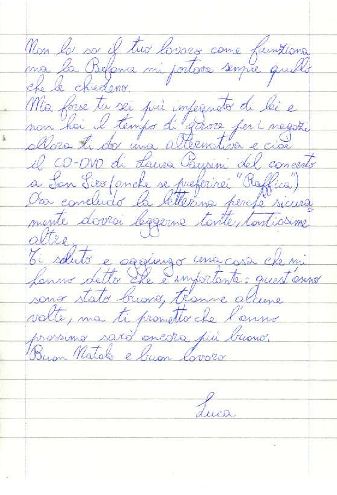 Non lo so il tuo lavoro come funziona
ma la Befana mi portava sempre quello
che le chiedevo.
Ma forse tu sei più impegnato di lei e
non hai il tempo di girare per i negozi
allora ti do una alternativa e cioè
il CD-DVD di Laura Pausini del concerto
a San Siro (anche se preferirei "Raffica")
Ora concludo la letterina perché sicura-
mente dovrai leggerne tante, tantissime
altre.
Ti saluto e aggiungo una cosa che mi
hanno detto che è importante: quest'anno
sono stato buono, tranne alcune
volte, ma ti prometto che l'anno
prossimo sarò ancora più buono.
Buon Natale e buon lavoro
Luca